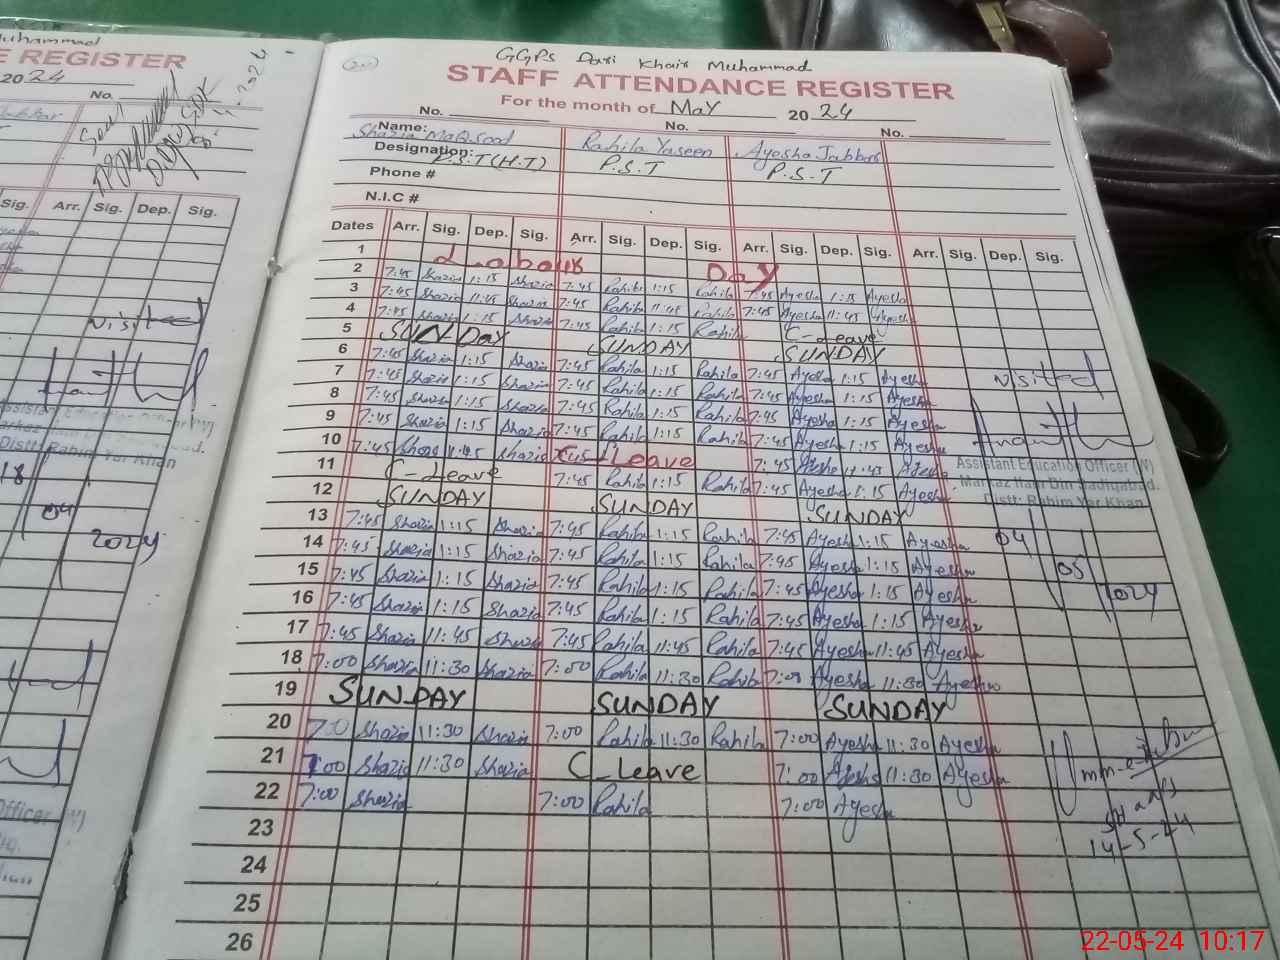 Muhammad
E REGISTER
2024
No.
Arr. Sig. Dep. Sig.
visited
Assistan Education Officer (W)
Distt: Rahim Yar Khan
18
04
2024
Officer (W)
20
GGPS Dari Khair Muhammad
STAFF ATTENDANCE REGISTER
For the month of May 2024
No. No. No.
Name: Shazia Maqsood Rahila Yaseen Ayesha Jabbar
Designation: P.S.T (H.T) P.S.T P.S.T
Phone #
N.I.C #
Dates Arr. Sig. Dep. Sig. Arr. Sig. Dep. Sig. Arr. Sig. Dep. Sig. Arr. Sig. Dep. Sig.
1 Labour Day
2 7:45 Shazia 1:15 Shazia 7:45 Rahila 1:15 Rahila 7:45 Ayesha 1:15 Ayesha
3 7:45 Shazia 11:45 Shazia 7:45 Rahila 11:45 Rahila 7:45 Ayesha 11:45 Ayesha
4 7:45 Shazia 1:15 Shazia 7:45 Rahila 1:15 Rahila C-Leave
5 SUNDay SUNDAY SUNDAY
6 7:45 Shazia 1:15 Shazia 7:45 Rahila 1:15 Rahila 7:45 Ayesha 1:15 Ayesha
7 7:45 Shazia 1:15 Shazia 7:45 Rahila 1:15 Rahila 7:45 Ayesha 1:15 Ayesha
8 7:45 Shazia 1:15 Shazia 7:45 Rahila 1:15 Rahila 7:45 Ayesha 1:15 Ayesha
9 7:45 Shazia 1:15 Shazia 7:45 Rahila 1:15 Rahila 7:45 Ayesha 1:15 Ayesha
10 7:45 Shazia 11:45 Shazia Leave 7:45 Ayesha 11:45 Ayesha
11 C-Leave 7:45 Rahila 1:15 Rahila 7:45 Ayesha 1:15 Ayesha
12 SUNDAY SUNDAY SUNDAY
13 7:45 Shazia 1:15 Shazia 7:45 Rahila 1:15 Rahila 7:45 Ayesha 1:15 Ayesha
14 7:45 Shazia 1:15 Shazia 7:45 Rahila 1:15 Rahila 7:45 Ayesha 1:15 Ayesha
15 7:45 Shazia 1:15 Shazia 7:45 Rahila 1:15 Rahila 7:45 Ayesha 1:15 Ayesha
16 7:45 Shazia 1:15 Shazia 7:45 Rahila 1:15 Rahila 7:45 Ayesha 1:15 Ayesha
17 7:45 Shazia 11:45 Shazia 7:45 Rahila 11:45 Rahila 7:45 Ayesha 11:45 Ayesha
18 7:00 Shazia 11:30 Shazia 7:00 Rahila 11:30 Rahila 7:00 Ayesha 11:30 Ayesha
19 SUNDAY SUNDAY SUNDAY
20 7:00 Shazia 11:30 Shazia 7:00 Rahila 11:30 Rahila 7:00 Ayesha 11:30 Ayesha
21 7:00 Shazia 11:30 Shazia C-Leave 7:00 Ayesha 11:30 Ayesha
22 7:00 Shazia 7:00 Rahila 7:00 Ayesha
23
24
25
26
visited
Assistant Education Officer (W)
Distt: Rahim Yar Khan
04
05
2024
14-5-24
22-05-24 10:17